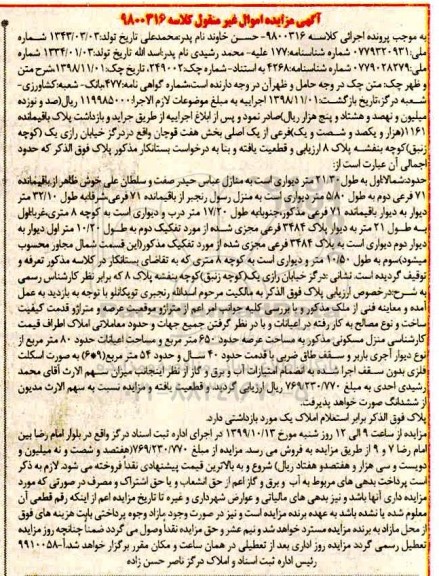 آگهی مزایده اموال غیر منقول کلاسه ۹۸۰۰۳۱۶
به موجب پرونده اجرائی کلاسه ۹۸۰۰۳۱۶- حسن خاوند نام پدر:محمدعلی تاریخ تولد:۱۳۴۳/۰۳/۰۳ شماره
ملی:۰۷۷۹۳۲۰۹۳۱ شماره شناسنامه:۱۷۷ علیه- محمد رشیدی نام پدر:اسد الله تاریخ تولد:۱۳۳۴/۰۱/۰۳ شماره
ملی:۰۷۷۹۰۲۸۲۷۹ شماره شناسنامه:۴۲۶۸ به استناد- شماره چک:۲۴۹۰۰۲، تاریخ چک:۱۳۹۸/۱۱/۰۱،شرح متن
و ظهر چک: متن چک در وجه حامل و ظهرآن در وجه دارنده است،شماره گواهی نامه:۴۷۷،بانک- شعبه:کشاورزی-
شعبه درگز،تاریخ بازگشت:۱۳۹۸/۱۱/۰۱ اجراییه به مبلغ موضوعات لازم الاجرا:۱۱۹۹۸۵۰۰۰ ریال(صد و نوزده
میلیون و نهصد و هشتاد و پنج هزار ریال)صادر نمود و پس از ابلاغ اجراییه از طریق جراید و بازداشت پلاک باقیمانده
۱۱۶۱(هزار و یکصد و شصت و یک)فرعی از یک اصلی بخش هفت قوچان واقع در درگز خیابان رازی یک (کوچه
زنبق)کوچه بنفشه پلاک ۸ ارزیابی و قطعیت یافته و بنا به درخواست بستانکار مذکور پلاک فوق الذکر که حدود
اجمالی آن عبارت است از:
حدود:شمالا:اول به طول ۲۱/۳۰ متر دیواری است به منازل عباس حیدر صفت و سلطان علی خوش ظاهر از باقیمانده
۷۱ فرعی دوم به طول ۵/۸۰ متر دیواری است به منزل رسول رنجبر از باقیمانده ۷۱ فرعی،شرقا:به طول ۳۲/۱۰ متر
دیوار به دیوار باقیمانده ۷۱ فرعی مذکور،جنوبا:به طول ۱۷/۲۰ متر درب و دیواری است به کوچه ۸ متری،غربا:اول
به طول ۲۱ متر به دیوار پلاک ۳۴۸۴ فرعی مجزی شده از مورد تفکیک دوم به طول ۱۰/۲۰ متر اول دیوار به
دیوار دوم دیواری است به پلاک ۳۴۸۴ فرعی مجزی شده از مورد تفکیک مذکور(این قسمت شمال مجاور محسوب
میشود)سوم به طول ۱۰/۵۰ متر و دیواری است به کوچه ۸ متری که به تقاضای بستانکار در کلاسه مذکور تعرفه و
توقیف گردیده است. نشانی :درگز خیابان رازی یک(کوچه زنبق)کوچه بنفشه پلاک ۸ که برابر نظر کارشناس رسمی
به شرح:درخصوص ارزیابی پلاک فوق الذکر به مالکیت مرحوم اسدالله رنجبری توپکانلو با توجه به بازدید به عمل
آمده و معاینه فنی از ملک مذکور و با بررسی کلیه جوانب امر اعم از متراژ و موقعیت عرصه و متراژ و قدمت کیفیت
ساخت و نوع مصالح به کار رفته در اعیانات و با در نظر گرفتن جمیع جهات و حدود معاملاتی املاک اطراف قیمت
کارشناسی منزل مسکونی مذکور به مساحت عرصه حدود ۶۵۰ متر مربع و مساحت اعیانات حدود ۸۰ متر مربع از
نوع دیوار آجری باربر و سقف طاق ضربی با قدمت حدود ۴۰ سال و حدود ۵۴ متر مربع(۶*۹) به صورت اسکلت
فلزی بدون سقف اجرا شده به انضمام امتیازات آب و برق و گاز از نظر اینجانب میزان سهم الارث آقای محمد
رشیدی احدی به مبلغ ۷۶۹/۲۳۰/۷۷۰ ریال ارزیابی گردید. و قطعیت یافته و مزایده نسبت به سهم الارث مدیون
از ششدانگ صورت خواهد پذیرفت.
پلاک فوق الذکر برابر استعلام املاک یک مورد بازداشتی دارد.
مزایده از ساعت ۹ الی ۱۲ روز شنبه مورخ ۱۳۹۹/۱۰/۱۳ در اجرای اداره ثبت اسناد درگز واقع در بلوار امام رضا بین
امام رضا ۷ و ۹ از طریق مزایده به فروش می رسد. مزایده از مبلغ ۷۶۹/۲۳۰/۷۷۰(هفتصد و شصت و نه میلیون و
دویست و سی هزار و هفتصدو هفتاد ریال) شروع و به بالاترین قیمت پیشنهادی نقدا فروخته می شود. لازم به ذکر
است پرداخت بدهی های مربوط به آب و برق و گاز اعم از حق انشعاب و یا حق اشتراک و مصرف در صورتی که مورد
مزایده داری آنها باشد و نیز بدهی های مالیاتی و عوارض شهرداری و غیره تا تاریخ مزایده اعم از اینکه رقم قطعی آن
معلوم شده یا نشده باشد به عهده برنده مزایده است و نیز در صورت وجود مازاد وجوه پرداختی بابت هزینه های فوق
از محل مازاد به برنده مزایده مسترد خواهد شد و نیم عشر و حق مزایده نقدا وصول می گردد ضمناً چنانچه روز مزایده
تعطیل رسمی گردد مزایده روز اداری بعد از تعطیلی در همان ساعت و مکان مقرر برگزار خواهد شد.آ-۹۹۱۰۰۵۸
رئیس اداره ثبت اسناد و املاک درگز ناصر حسن زاده